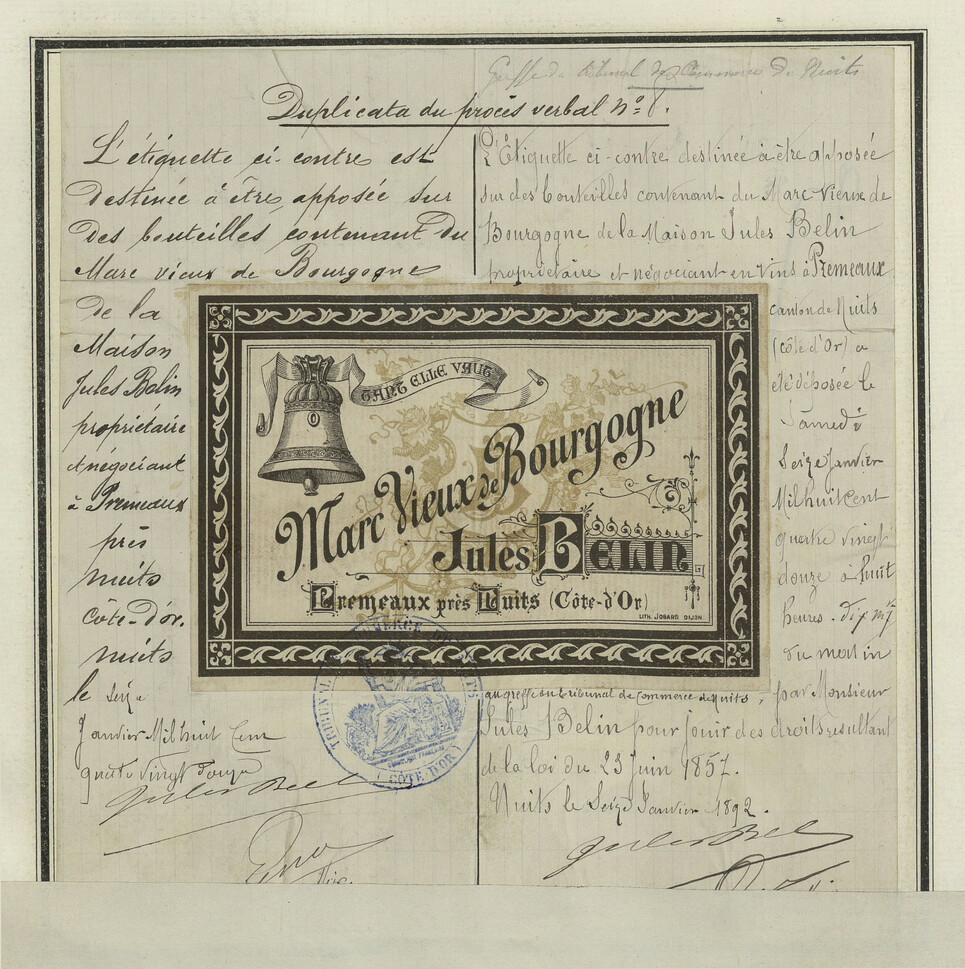 Greffe du tribunal de Commerce de Nuits
Duplicata du procès verbal N° 8.
L'étiquette ci-contre est
destinée à être apposée sur
des bouteilles contenant du
Marc vieux de Bourgogne
de la
Maison
Jules Belin
propriétaire
et négociant
à Premeaux
près
nuits
Côte-d'or.
nuits
le Seize
Janvier Mil huit Cent
quatre vingt douze
Jules Belin
L'Étiquette ci-contre destinée à être apposée
sur des bouteilles contenant du Marc Vieux de
Bourgogne de la Maison Jules Belin
propriétaire et négociant en vins à Premeaux
canton de Nuits
(côte d'Or) a
été déposée le
Samedi
Seize Janvier
Mil huit cent
quatre vingt
douze à huit
heures dix mtes
du matin
au greffe du tribunal de Commerce de Nuits, par Monsieur
Jules Belin pour jouir des droits résultant
de la loi du 23 Juin 1857.
Nuits le Seize Janvier 1892.
Jules Belin
TANT ELLE VAUT
Marc Vieux de Bourgogne
Jules BELIN
Premeaux près Nuits (Côte-d'Or)
LITH. JOBARD DIJON
TRIBUNAL DE COMMERCE DE NUITS
(CÔTE D'OR)